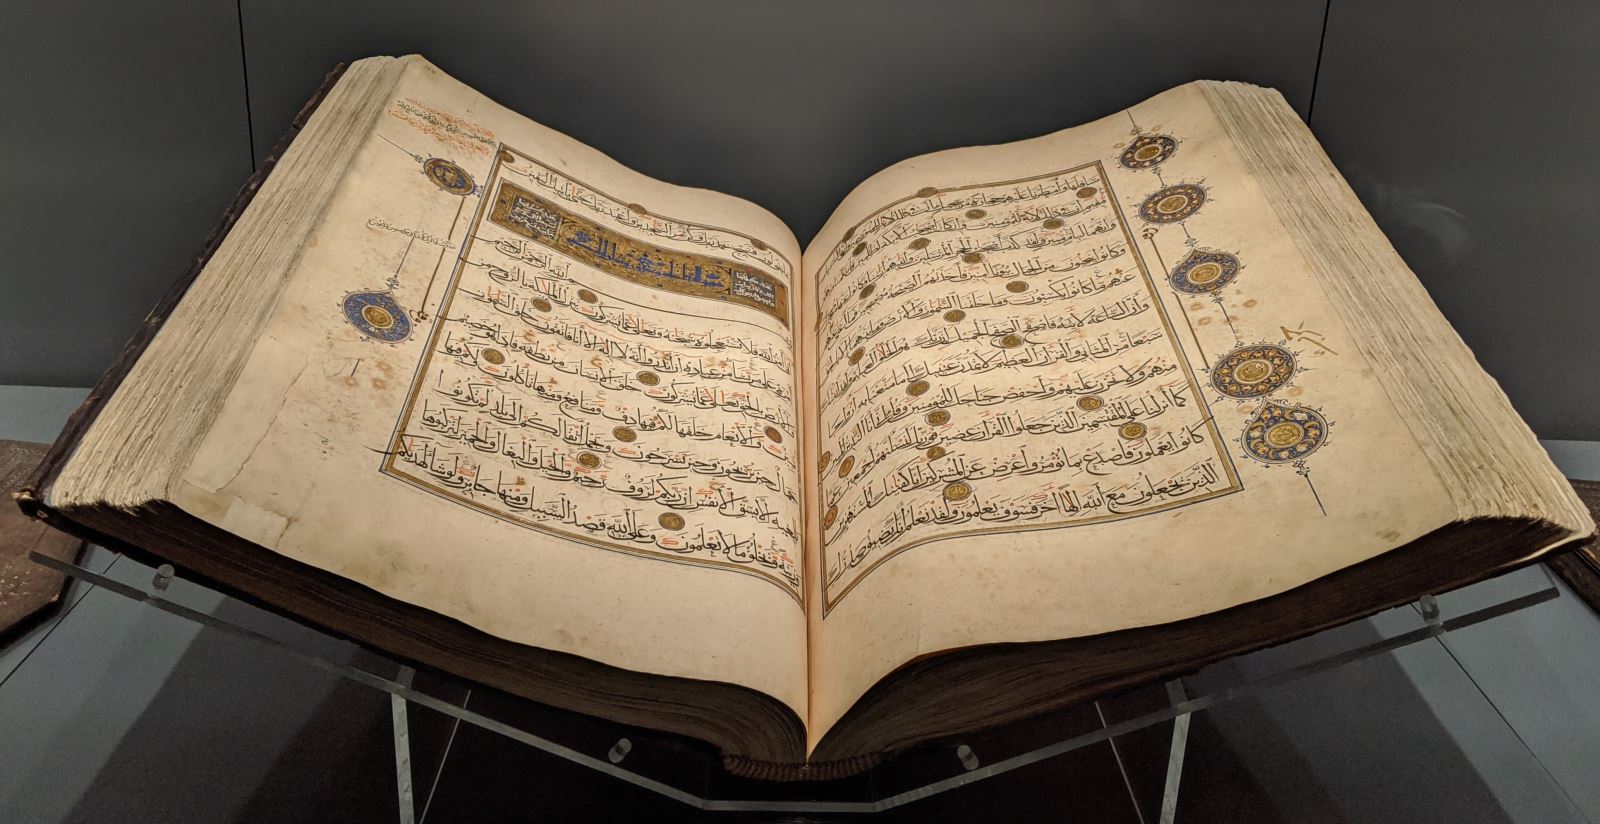 سافلها وأمطرنا عليهم حجارة من سجيل إن في ذلك لآيات للمتوسمين وإنها لبسبيل
مقيم إن في ذلك لآية للمؤمنين وإن كان أصحاب الأيكة لظالمين فانتقمنا منهم
وإنهما لبإمام مبين ولقد كذب أصحاب الحجر المرسلين وآتيناهم آياتنا فكانوا عنها معرضين
وكانوا ينحتون من الجبال بيوتا آمنين فأخذتهم الصيحة مصبحين فما أغنى
عنهم ما كانوا يكسبون وما خلقنا السموات والأرض وما بينهما إلا بالحق
وإن الساعة لآتية فاصفح الصفح الجميل إن ربك هو الخلاق العليم ولقد آتيناك
سبعا من المثاني والقرآن العظيم لا تمدن عينيك إلى ما متعنا به أزواجا
منهم ولا تحزن عليهم واخفض جناحك للمؤمنين وقل إني أنا النذير المبين
كما أنزلنا على المقتسمين الذين جعلوا القرآن عضين فوربك لنسألنهم أجمعين عما
كانوا يعملون فاصدع بما تؤمر وأعرض عن المشركين إنا كفيناك المستهزئين
الذين يجعلون مع الله إلها آخر فسوف يعلمون ولقد نعلم أنك يضيق صدرك
بما يقولون فسبح بحمد ربك وكن من الساجدين واعبد ربك حتى يأتيك اليقين
بسم الله الرحمن الرحيم
أتى أمر الله فلا تستعجلوه سبحانه وتعالى عما يشركون ينزل الملائكة بالروح من
أمره على من يشاء من عباده أن أنذروا أنه لا إله إلا أنا فاتقون خلق السموات
والأرض بالحق تعالى عما يشركون خلق الإنسان من نطفة فإذا هو خصيم
مبين والأنعام خلقها لكم فيها دفء ومنافع ومنها تأكلون ولكم فيها
جمال حين تريحون وحين تسرحون وتحمل أثقالكم إلى بلد لم تكونوا
بالغيه إلا بشق الأنفس إن ربكم لرؤوف رحيم والخيل والبغال والحمير لتركبوها
وزينة ويخلق ما لا تعلمون وعلى الله قصد السبيل ومنها جائر ولو شاء لهداكم